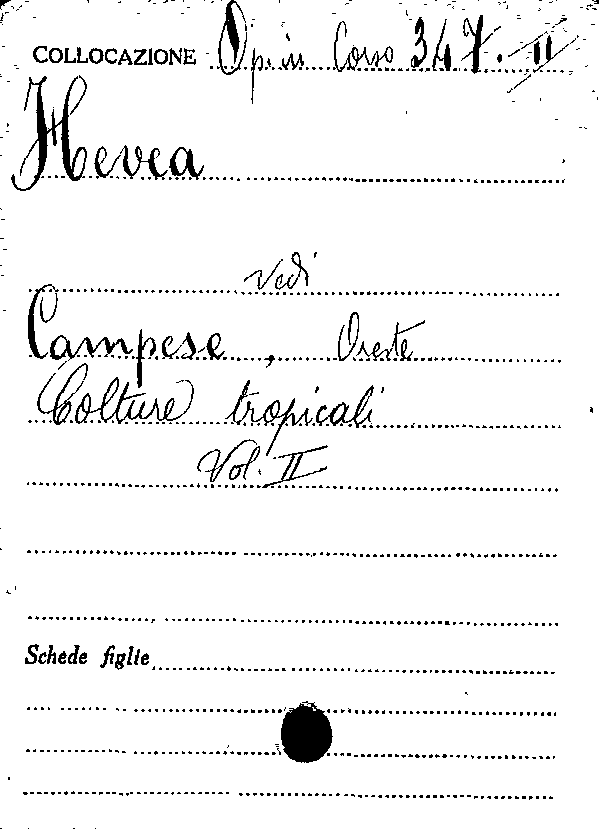 COLLOCAZIONE Op. in Corso 347. II
Hevea
Vedi
Campese, Oreste
Colture tropicali
Vol. II
Schede figlie